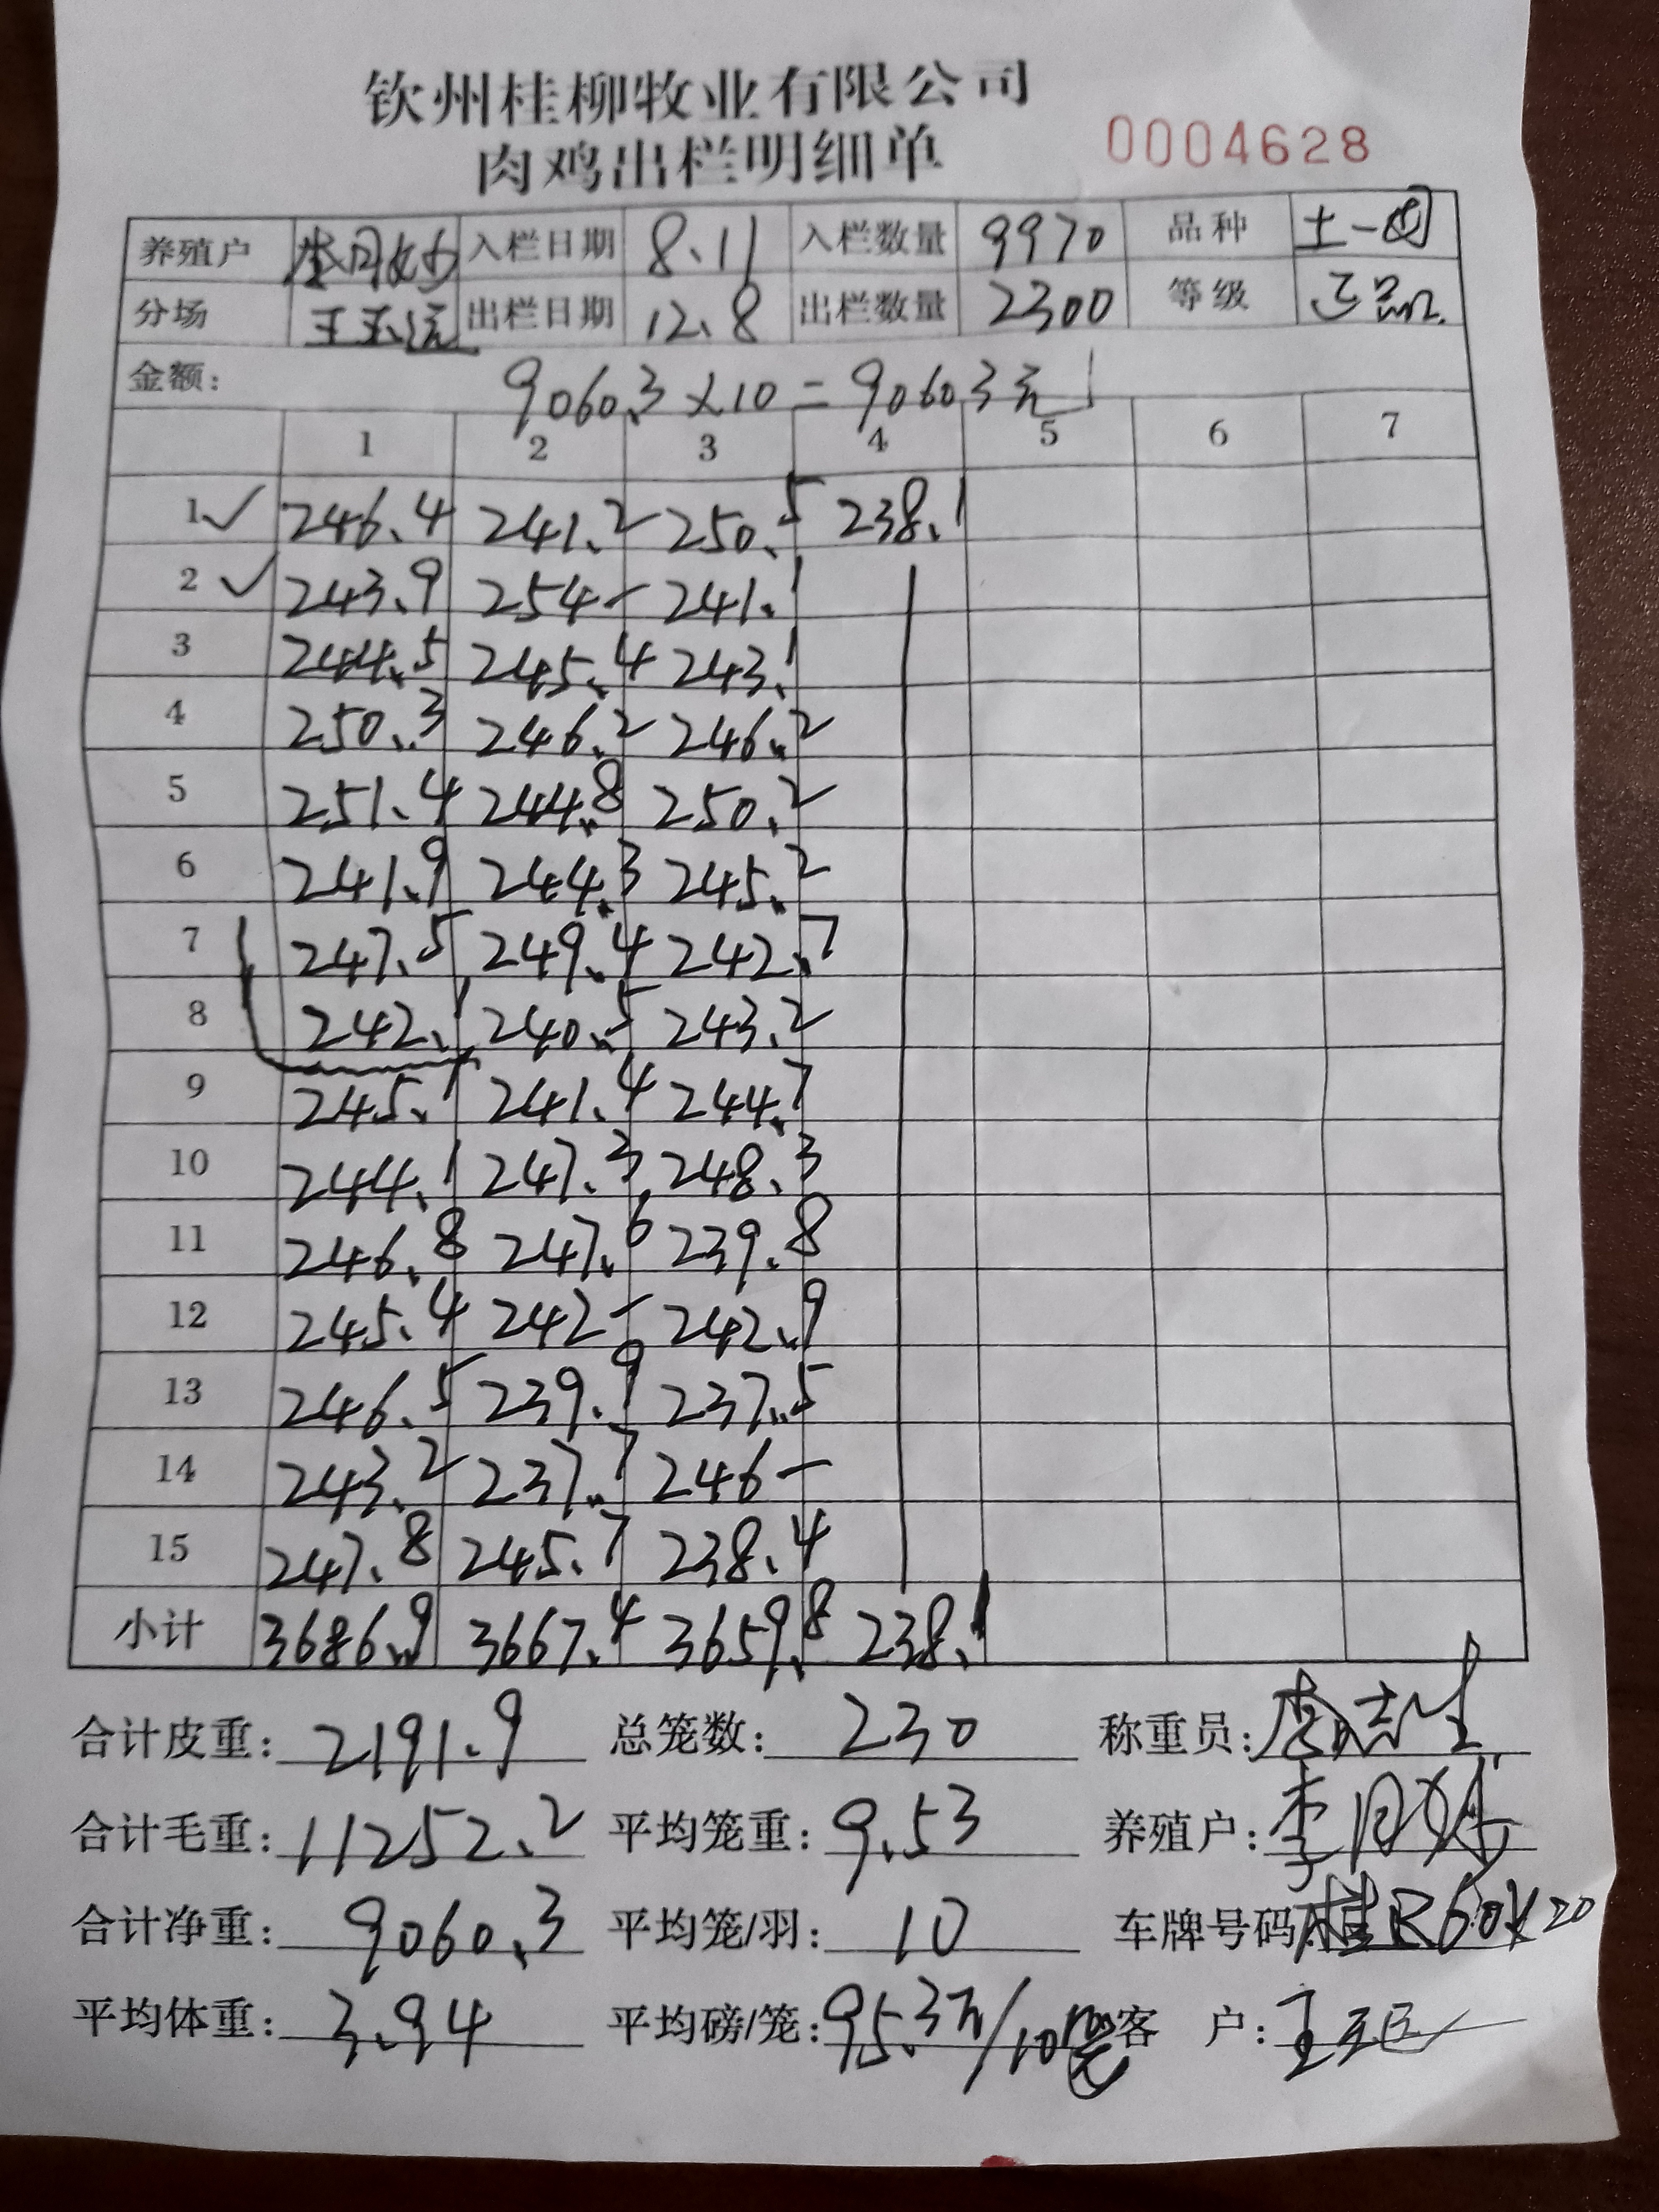 钦州桂柳牧业有限公司
肉鸡出栏明细单 0004628
养殖户 入栏日期 8.11 入栏数量 9970 品种 土一
分场 王玉 出栏日期 12.8 出栏数量 2300 等级 正品
金额: 9060.3 × 10 = 90603元
1 2 3 4 5 6 7
1 ✓ 246.4 241.2 250.5 238.1
2 ✓ 243.9 254- 241.1
3 244.5 245.4 243.1
4 250.3 246.2 246.2
5 251.4 244.8 250.2
6 241.9 244.3 245.2
7 247.5 249.4 242.7
8 242.1 240.5 243.2
9 245.1 241.4 244.7
10 244.1 247.3 248.3
11 246.8 247.6 239.8
12 245.4 242- 242.9
13 246.5 239.9 237.5
14 243.2 237.7 246-
15 247.8 245.7 238.4
小计 3686.9 3667.4 3659.8 238.1
合计皮重: 2191.9 总笼数: 230 称重员: 李志生
合计毛重: 11252.2 平均笼重: 9.53 养殖户: 李月
合计净重: 9060.3 平均笼/羽: 10 车牌号码: 桂R60X20
平均体重: 3.94 平均磅/笼: 95.3元/10 客 户: 王